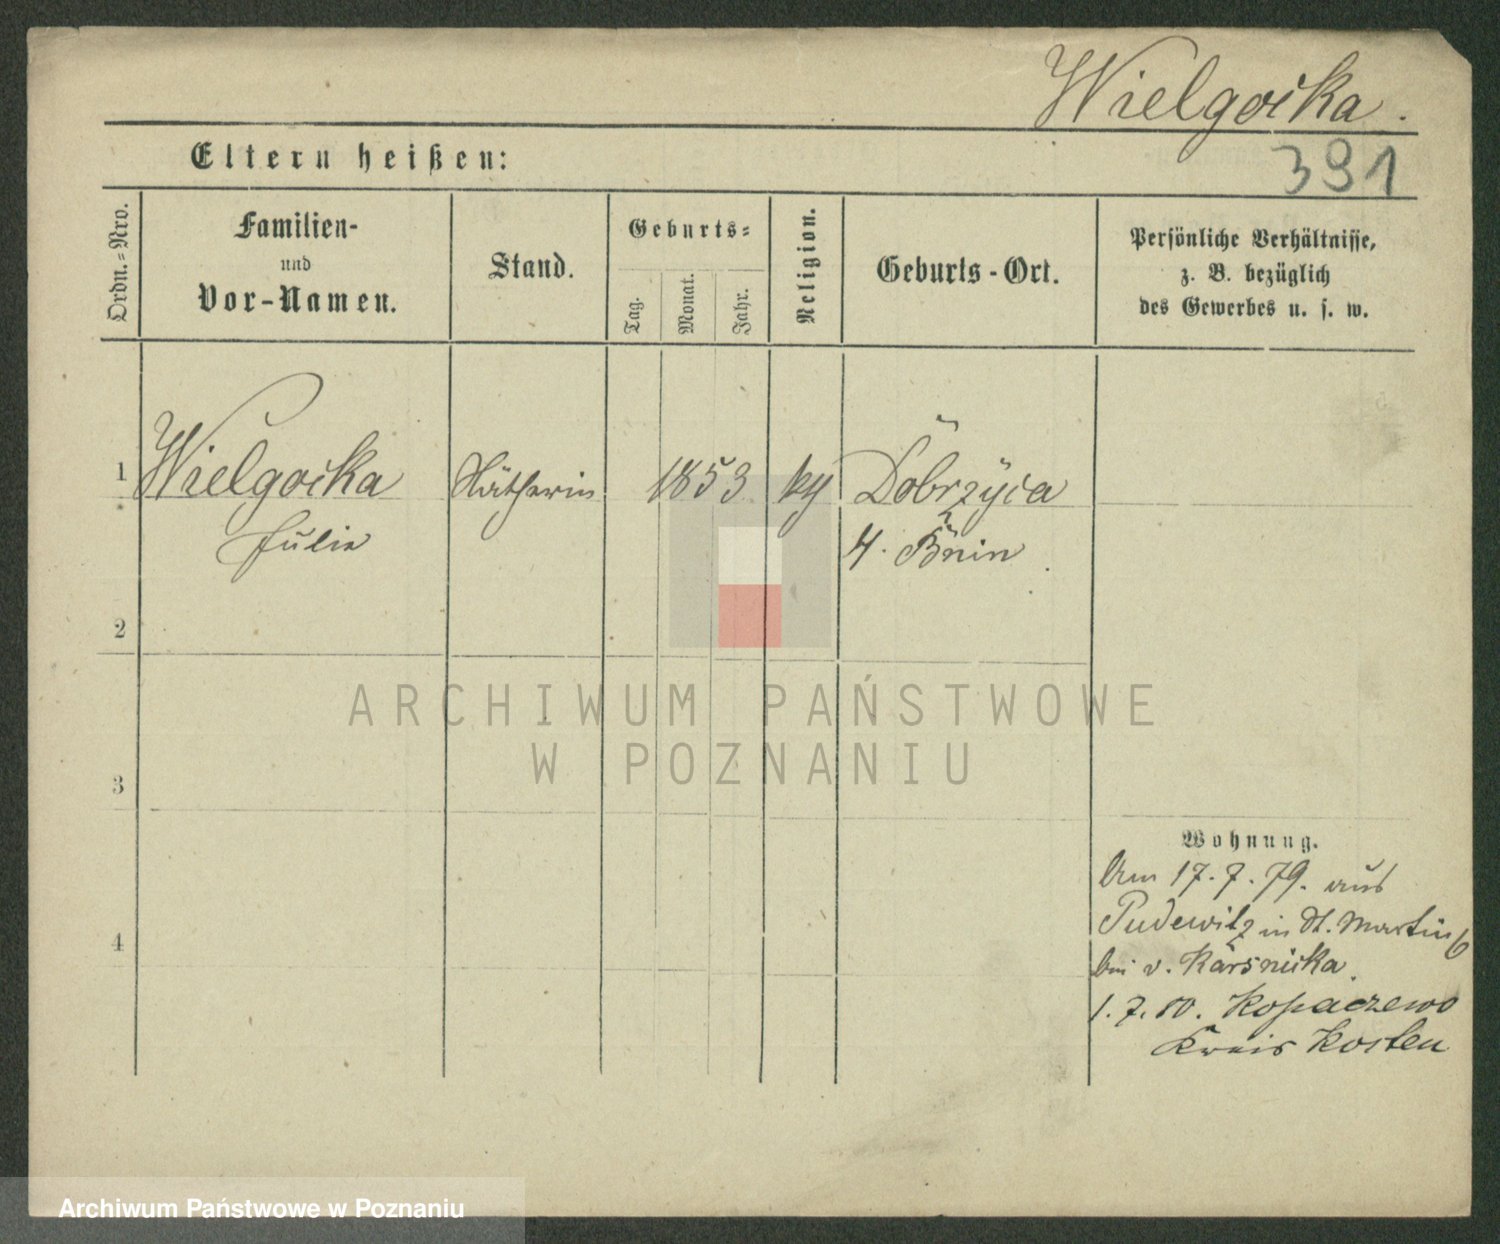 Wielgocka.
391
Eltern heißen:
Ordn.=Nro.
Familien-
und
Vor-Namen.
Stand.
Geburts=
Tag.
Monat.
Jahr.
Religion.
Geburts-Ort.
Persönliche Verhältnisse,
z. B. bezüglich
des Gewerbes u. s. w.
1 Wielgocka Nätherin 1853 Dobrzyca
Julie Bnin
2
3
4
Wohnung.
Am 17.7.79. aus
Pudewitz in St. Martin 6
bei v. Karsnicka.
1.7.80. Kopaczewo
Kreis Kosten
ARCHIWUM PAŃSTWOWE
W POZNANIU
Archiwum Państwowe w Poznaniu